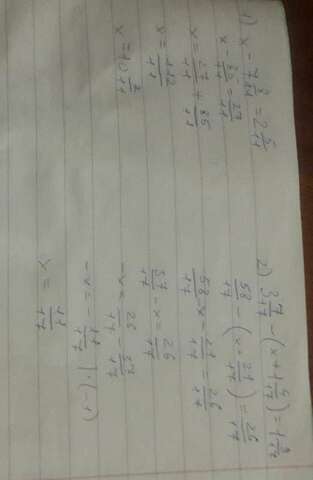 1) x - 7 8/11 = 2 5/11
x - 85/11 = 27/11
x = 27/11 + 85/11
x = 112/11
x = 10 2/11
2) 3 7/17 - (x + 1 4/17) = 1 9/17
58/17 - (x + 21/17) = 26/17
58/17 - x - 21/17 = 26/17
37/17 - x = 26/17
-x = 26/17 - 37/17
-x = - 11/17 | · (-1)
x = 11/17